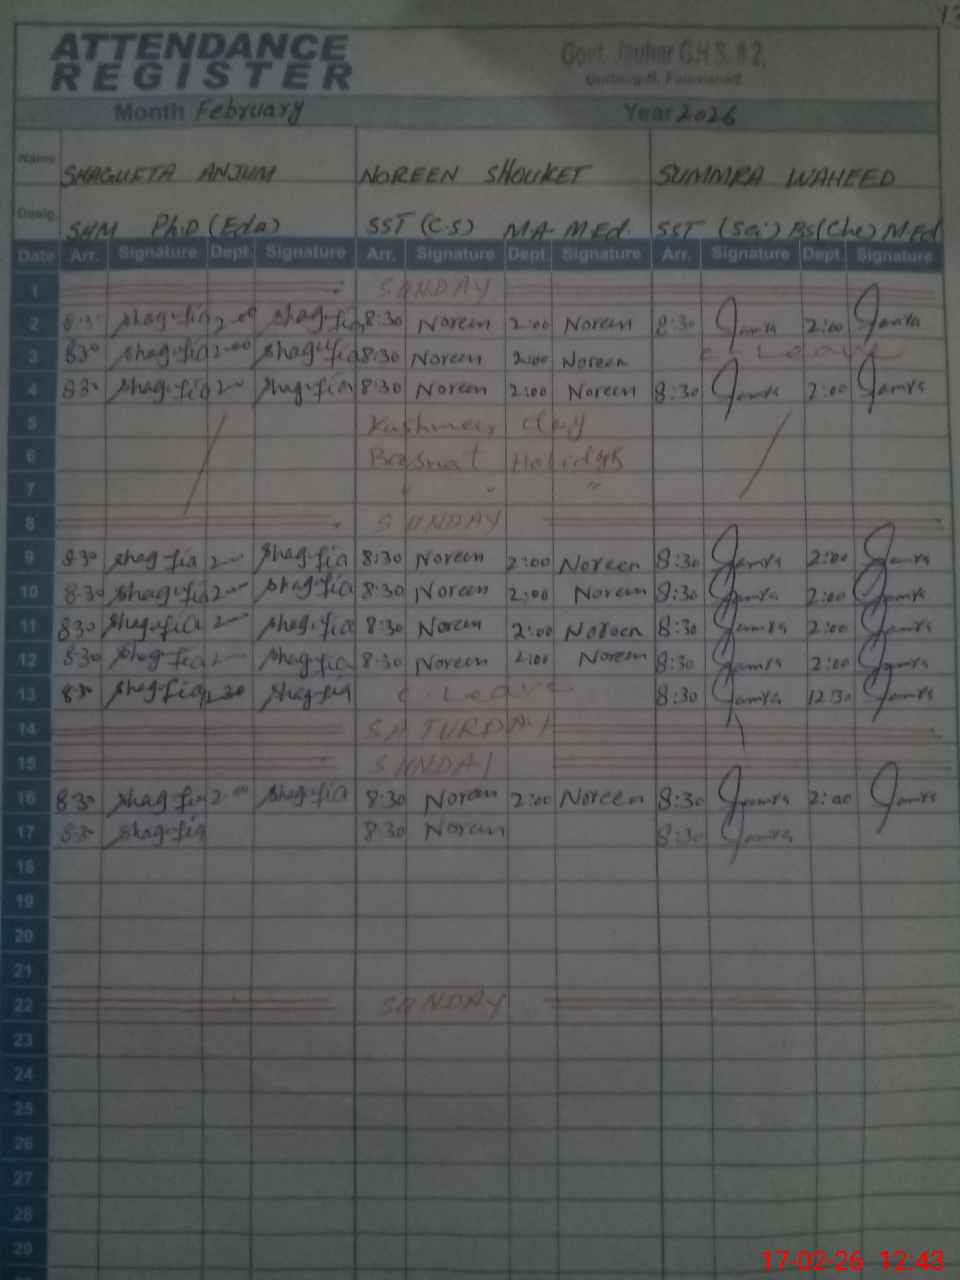 ATTENDANCE
REGISTER
Govt. Jauhar G.H.S. # 2,
Month February Year 2026
Name SHAGUFTA ANJUM NOREEN SHOUKET SUMMRA WAHEED
Desig. SHM Ph.D (Edu) SST (C.S) MA. M.Ed. SST (Sci) BS(Che) M.Ed
Date Arr. Signature Dept. Signature Arr. Signature Dept. Signature Arr. Signature Dept. Signature
1 SUNDAY
2 8:30 Shagufta 2:00 Shagufta 8:30 Noreen 2:00 Noreen 8:30 2:00
3 830 Shagufta 2:00 Shagufta 8:30 Noreen 2:00 Noreen C. Leave
4 830 Shagufta 2 Shagufta 8:30 Noreen 2:00 Noreen 8:30 2:00
5 Kashmir day
6 Basnat Holidays
7 " " "
8 SUNDAY
9 830 Shagufta 2 Shagufta 8:30 Noreen 2:00 Noreen 8:30 2:00
10 8:30 Shagufta 2 Shagufta 8:30 Noreen 2:00 Noreen 8:30 2:00
11 830 Shagufta 2 Shagufta 8:30 Noreen 2:00 Noreen 8:30 2:00
12 8:30 Shagufta 2 Shagufta 8:30 Noreen 2:00 Noreen 8:30 2:00
13 8:30 Shagufta 12:30 Shagufta C. Leave 8:30 12:30
14 SATURDAY
15 SUNDAY
16 830 Shagufta 2:00 Shagufta 8:30 Noreen 2:00 Noreen 8:30 2:00
17 8:30 Shagufta 8:30 Noreen 8:30
18
19
20
21
22 SUNDAY
23
24
25
26
27
28
29
17-02-26 12:43